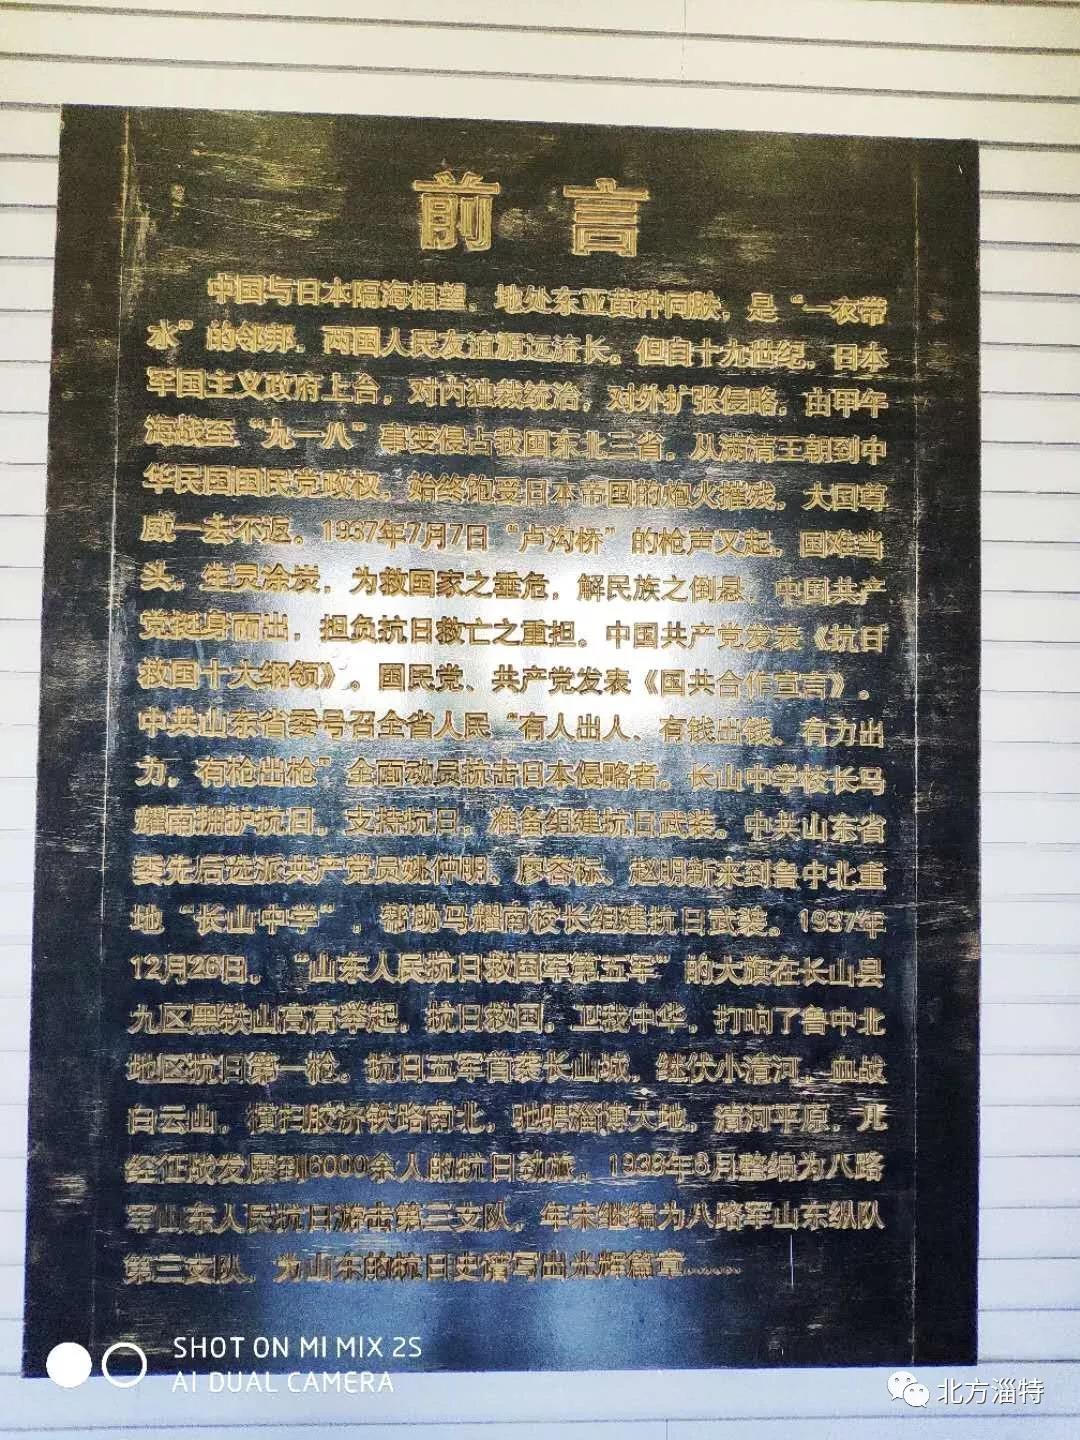 前言
中国与日本隔海相望，地处东亚黄种同肤，是“一衣带
水”的邻邦，两国人民友谊源远流长。但自十九世纪，日本
军国主义政府上台，对内独裁统治，对外扩张侵略，由甲午
海战至“九一八”事变侵占我国东北三省。从满清王朝到中
华民国国民党政权，始终饱受日本帝国的炮火摧残，大国尊
威一去不返。1937年7月7日“卢沟桥”的枪声又起，国难当
头，生灵涂炭，为救国家之垂危，解民族之倒悬，中国共产
党挺身而出，担负抗日救亡之重担。中国共产党发表《抗日
救国十大纲领》。国民党、共产党发表《国共合作宣言》。
中共山东省委号召全省人民“有人出人、有钱出钱、有力出
力，有枪出枪”全面动员抗击日本侵略者。长山中学校长马
耀南拥护抗日，支持抗日，准备组建抗日武装。中共山东省
委先后选派共产党员姚仲明、廖容标、赵明新来到鲁中北重
地“长山中学”，帮助马耀南校长组建抗日武装。1937年
12月26日，“山东人民抗日救国军第五军”的大旗在长山县
九区黑铁山高高举起，抗日救国，卫我中华，打响了鲁中北
地区抗日第一枪。抗日五军首袭长山城，继伏小清河，血战
白云山，横扫胶济铁路南北，驰骋淄博大地，清河平原，几
经征战发展到6000余人的抗日劲旅。1938年6月整编为八路
军山东人民抗日游击第三支队，年末继编为八路军山东纵队
第三支队，为山东的抗日史谱写出光辉篇章……
SHOT ON MI MIX 2S
AI DUAL CAMERA
北方淄特